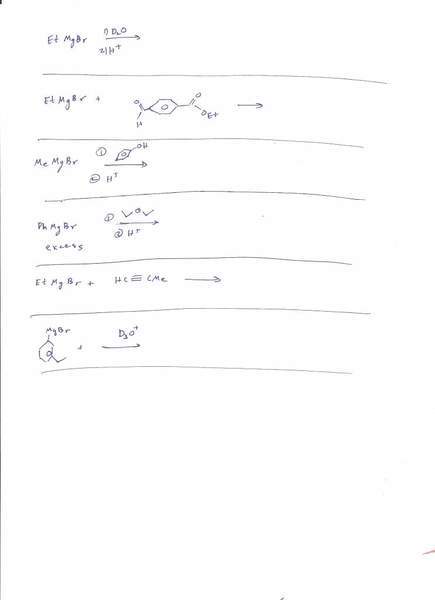 Et MgBr 1) D₂O
2) H⁺
Et MgBr +
O
H
O
OEt
Me MgBr ① OH
② H⁺
Ph MgBr ① O
excess ② H⁺
Et MgBr + HC≡CMe
MgBr
+ D₃O⁺